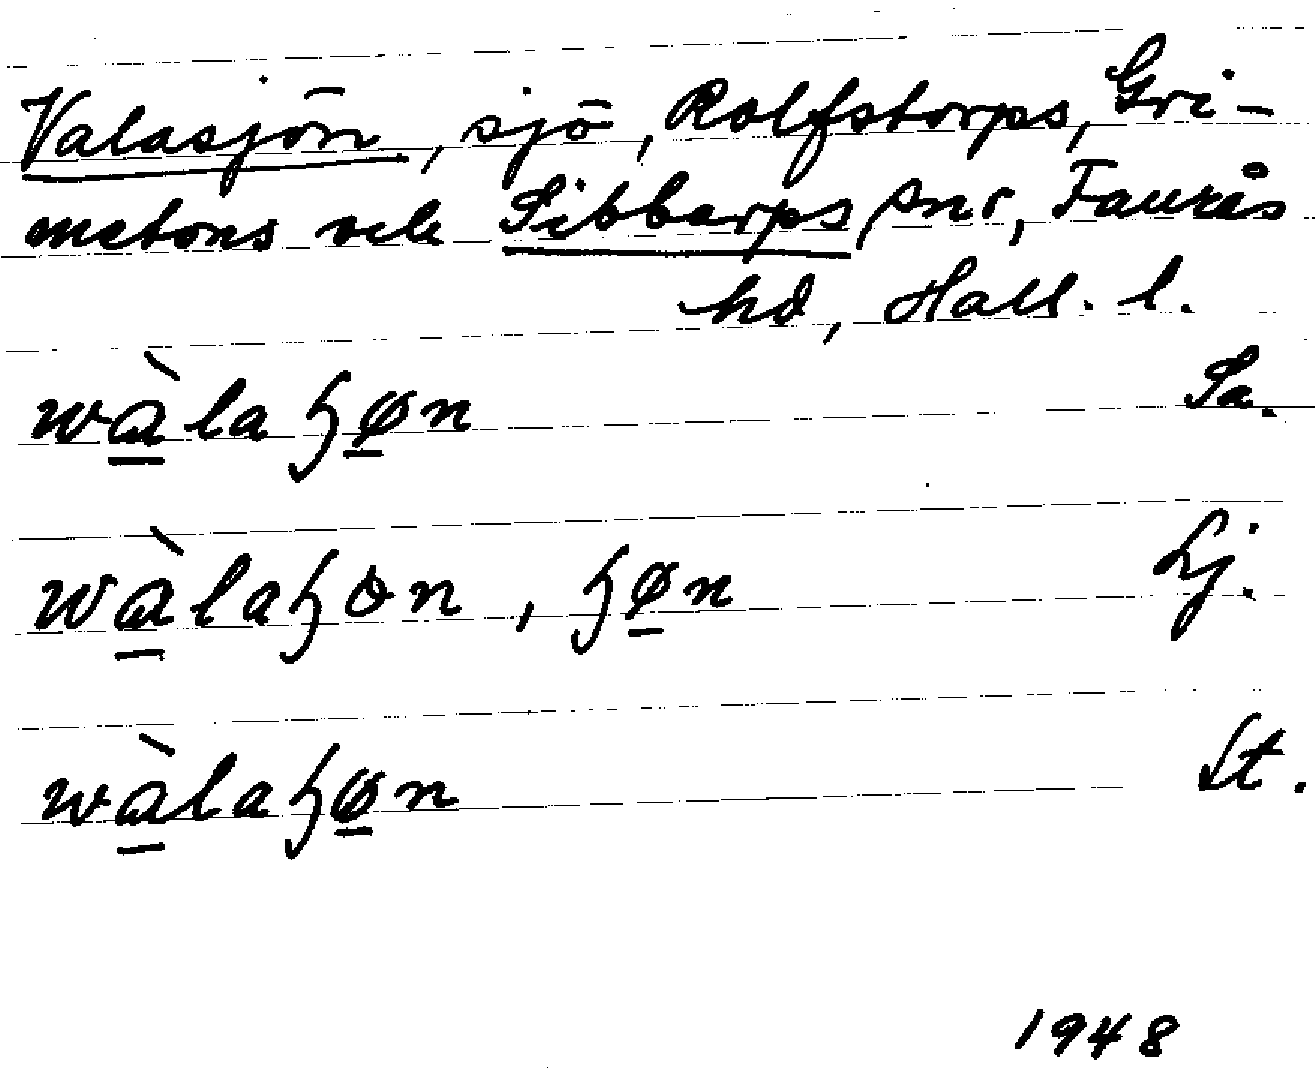 Valasjön, sjö, Rolfstorps, Gri-
metons och Sibbarps snr, Faurås
hd, Hall. l.
wàlaꜧøn Sa.
wàlaꜧɵn, ꜧøn Lj.
wàlaꜧøn St.
1948